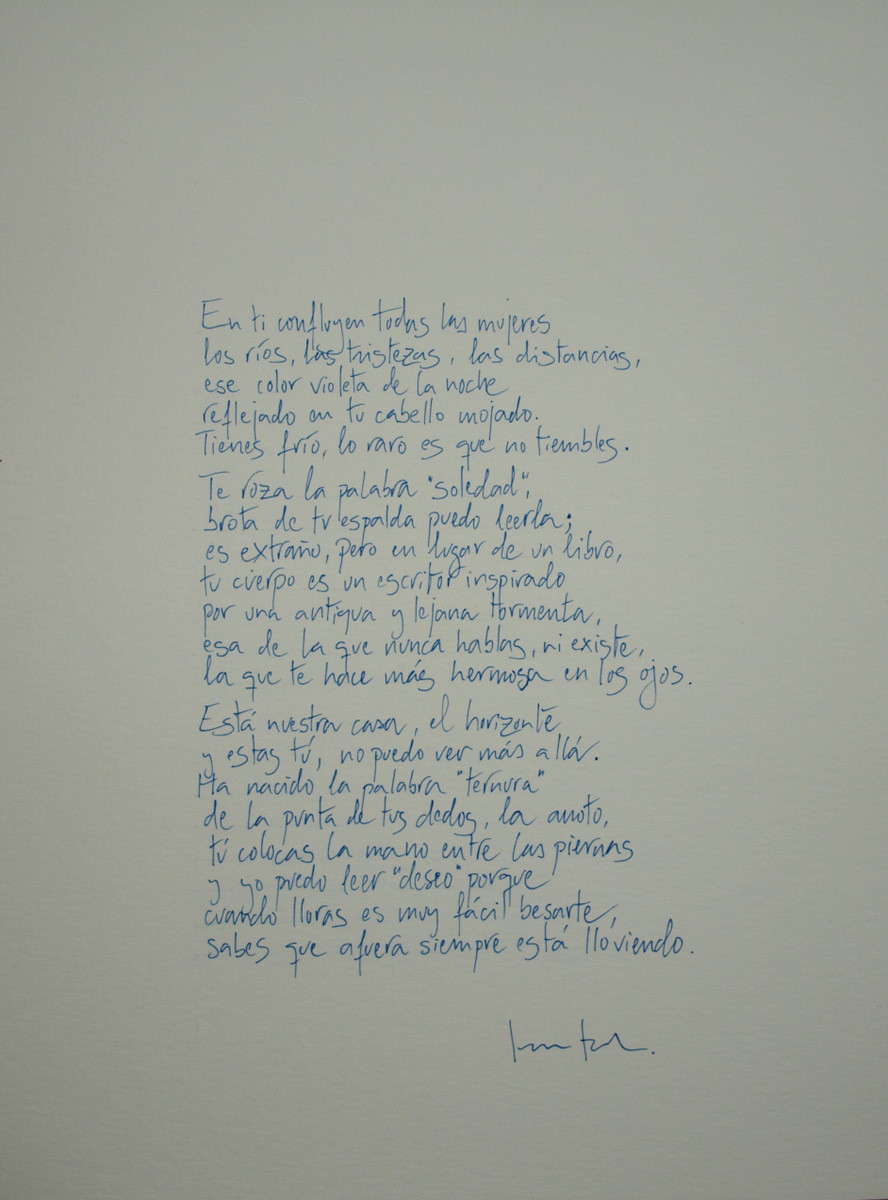 En ti confluyen todas las mujeres
los ríos, las tristezas, las distancias,
ese color violeta de la noche
reflejado en tu cabello mojado.
Tienes frío, lo raro es que no tiembles.
Te roza la palabra "soledad",
brota de tu espalda puedo leerla;
es extraño, pero en lugar de un libro,
tu cuerpo es un escritor inspirado
por una antigua y lejana tormenta,
esa de la que nunca hablas, ni existe,
la que te hace más hermosa en los ojos.
Está nuestra casa, el horizonte
y estas tú, no puedo ver más allá.
Ha nacido la palabra "ternura"
de la punta de tus dedos, la anoto,
tú colocas la mano entre las piernas
y yo puedo leer "deseo" porque
cuando lloras es muy fácil besarte,
sabes que afuera siempre está lloviendo.